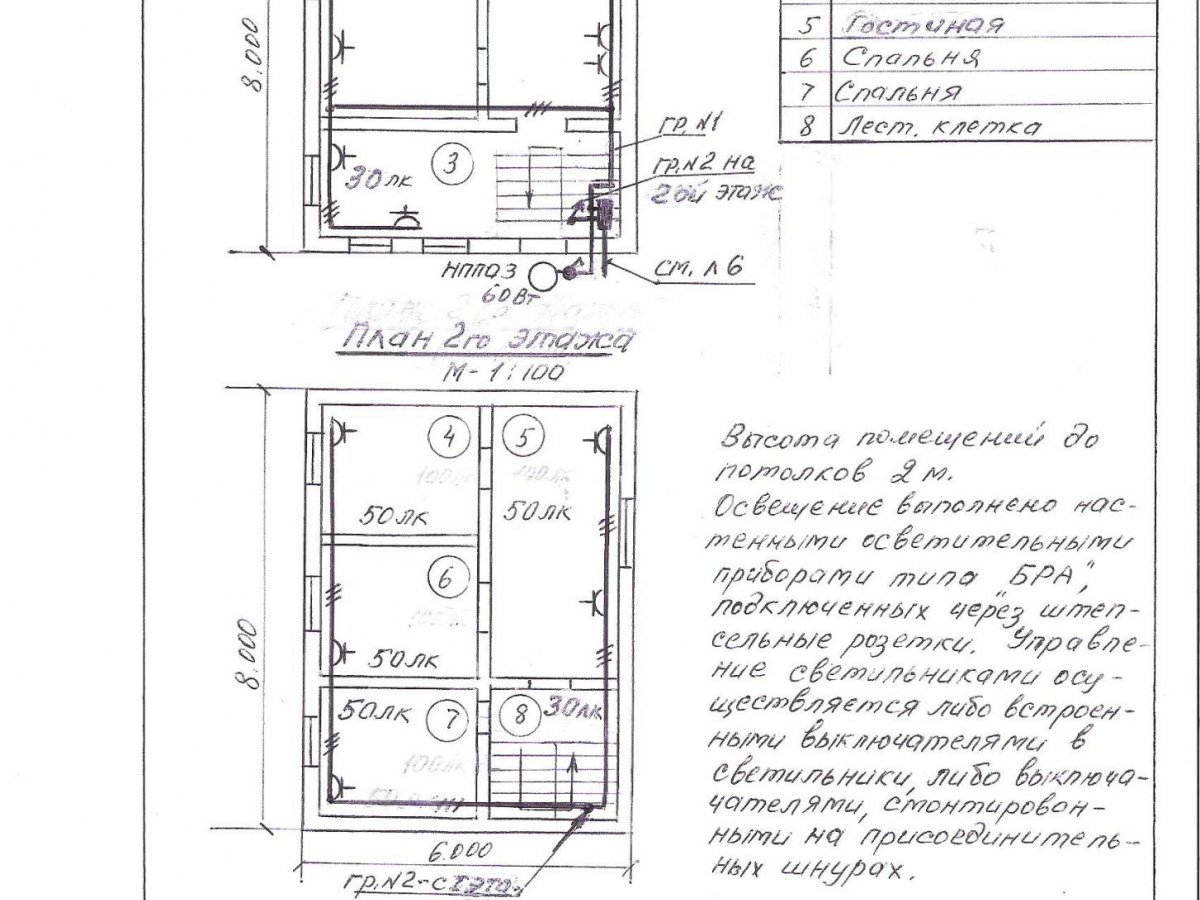 5 Гостиная
6 Спальня
7 Спальня
8 Лест. клетка
8.000
гр.N1
гр.N2 на
2ой этаж
3
30лк
НПЛАЗ
60Вт
см. л 6
План 2го этажа
М-1:100
4
5
100лк
50лк
50лк
6
50лк
8.000
50лк
7
8
30лк
100лк
6.000
гр.N2-с I эта.
Высота помещений до
потолков 2 м.
Освещение выполнено нас-
тенными осветительными
приборами типа "БРА",
подключенных через штеп-
сельные розетки. Управле-
ние светильниками осу-
ществляется либо встроен-
ными выключателями в
светильники, либо выключа-
чателями, смонтирован-
ными на присоединитель-
ных шнурах.